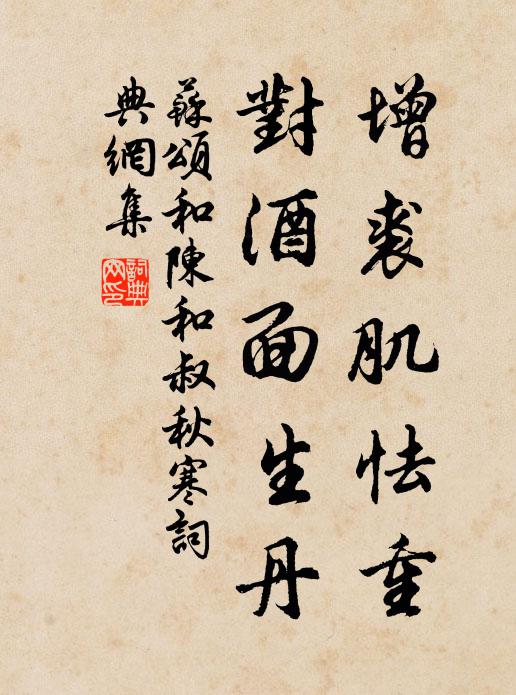 增裘肌怯重
對酒面生丹
蘇頌和陳和叔秋寒詞
典網集
詞典網印